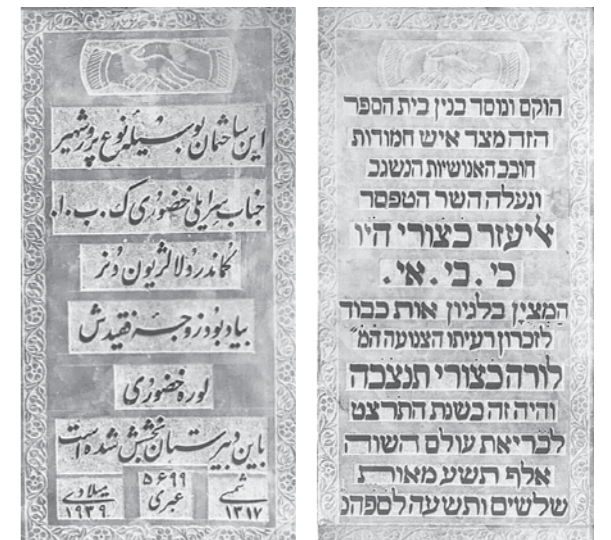 این ساختمان بوسیله نوع پرور شهیر
جناب سر ایلی خضوری ک . ب . ا .
کماندر دلالژیون دنر
بیادبود زوجه فقیدش
لوره خضوری
باین دبیرستان بخشش شده است
شمسی ۵۶۹۹ میلادی
۱۳۱۷ عبری ۱۹۳۹
הוקם ונוסד בנין בית הספר
הזה מצד איש חמודות
חובב האנושיות הנשגב
ונעלה השר הטפסר
אליעזר כצורי היו
כי . בי . אי .
המצין בלגיון אות כבוד
לזכרון רעיתו הצנועה המ״
לורה כצורי תנצבה
והיה זה בשנת התרצט
לבריאת עולם
אלף תשע מאות
שלשים ותשעה לספהנ